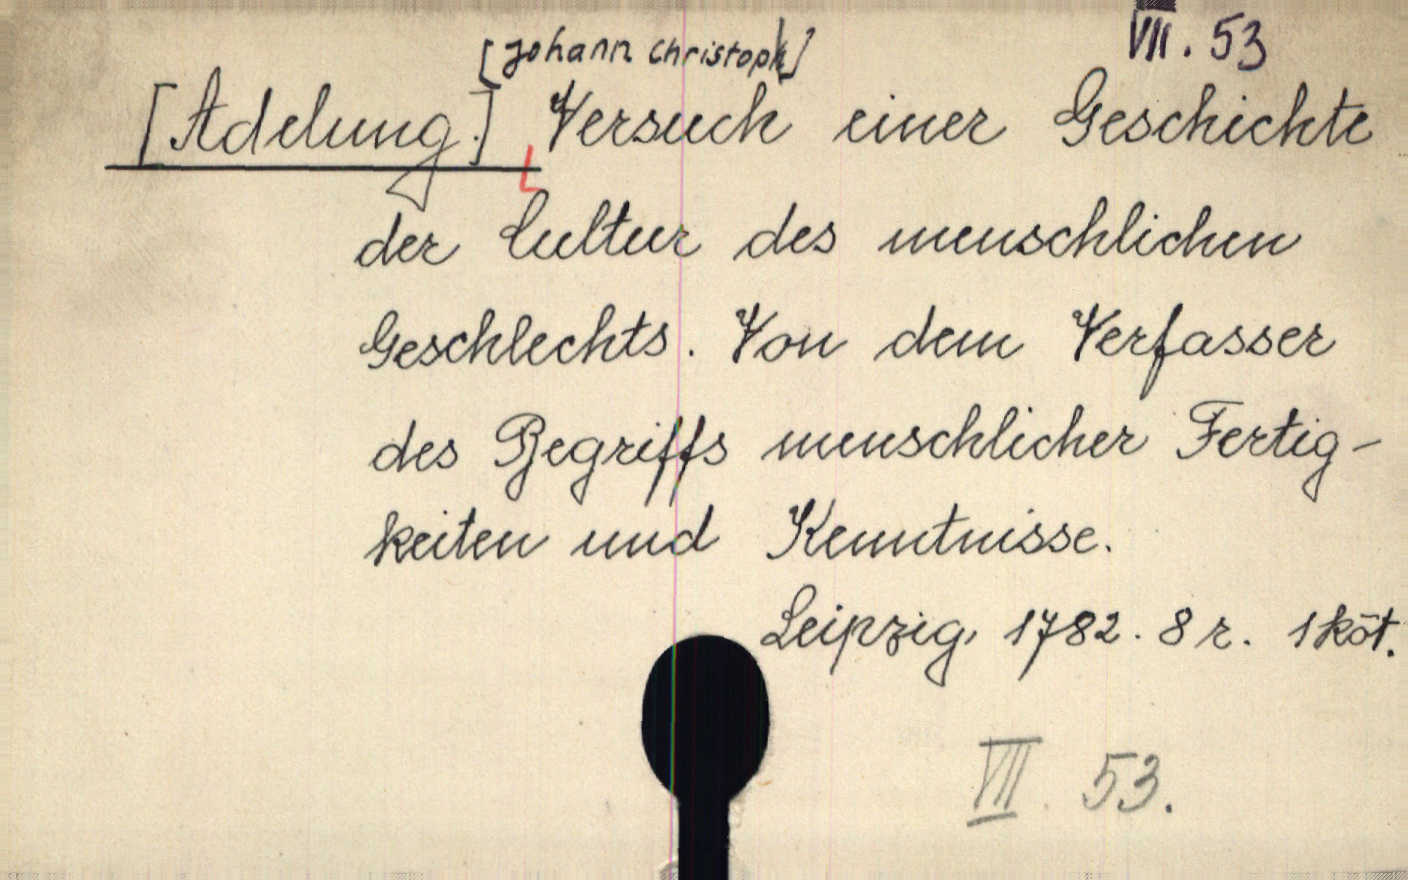 VII. 53
[Johann Christoph]
[Adelung.] Versuch einer Geschichte
der Cultur des menschlichen
Geschlechts. Von dem Verfasser
des Begriffs menschlicher Fertig-
keiten und Kenntnisse.
Leipzig, 1782. 8 r. 1 köt.
VII. 53.